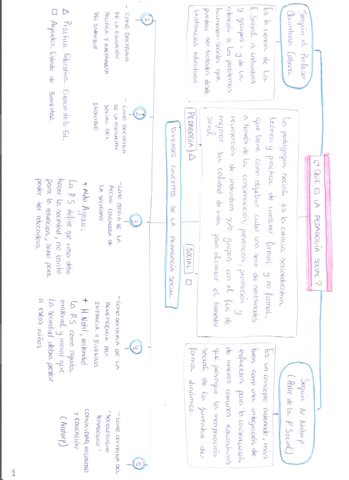 ¿QUÉ ES LA PEDAGOGÍA SOCIAL?
Según el Profesor
Quintana Cabanas
Es la ciencia de la
E. Social a individuos
y grupos y de la
a los problemas
humanos-sociales que
pueden ser tratados desde
instancias educativas
La pedagogía social es la ciencia socioeducativa,
teórica y práctica de carácter formal y no formal,
que tiene como objetivo cubrir una serie de necesidades
a través de la concienciación, prevención, promoción y
reinserción de individuos y/o grupos con el fin de
mejorar su calidad de vida para alcanzar el bienestar
social.
Según N. Natorp
(Padre de la P. Social)
Es un concepto más
bien como una integración de
esfuerzos para la construcción
de nuevos comunes educativos
que persigue la incorporación
social de la juventud de
forma dinámica.
PEDAGOGÍA △
SOCIAL □
DIVERSOS CONCEPTOS DE LA PEDAGOGÍA SOCIAL
1
- COMO DOCTRINA
DE LA EDUCACIÓN
POLÍTICA Y NACIONALISTA
DEL INDIVIDUO
2
- COMO DOCTRINA
DE LA FORMACIÓN
SOCIAL DEL
INDIVIDUO
3
- COMO TEORÍA DE LA
ACCIÓN EDUCADORA DE
LA SOCIEDAD
+ Aldo Agazzi:
La P.S. define que no debe
hacer la sociedad, no tanto
para la educación, sino para
poder ser educadora.
4
- COMO DOCTRINA DE LA
BENEFICENCIA PRO
INFANCIA Y JUVENTUD
+ H. Nohl, entendió
La P.S. como ayuda
material y moral que
la sociedad debía prestar
a estos niños
5
- COMO DOCTRINA DEL
"SOCIOLOGISMO
PEDAGÓGICO"
COMUNIDAD, VOLUNTAD
Y EDUCACIÓN
(Natorp)
△ Práctica Educativa, Ciencia de la Ed.
□ Ayuda, Cambio de Bienestar.
1